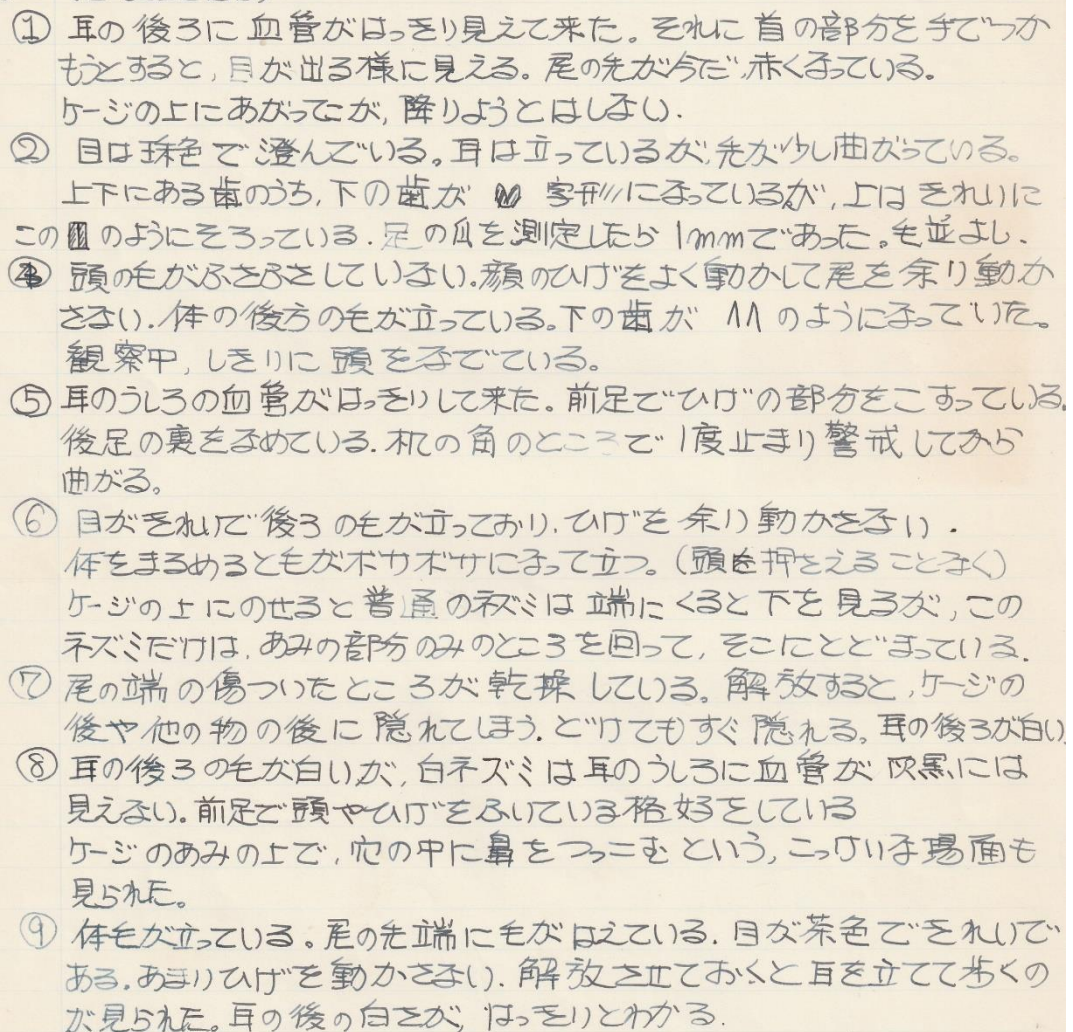 ① 耳の後ろに血管がはっきり見えて来た。それに首の部分を手でつか
もうとすると,目が出る様に見える。尾の先が今だ,赤くなっている。
ケージの上にあがってこが,降りようとはしない.
② 目は珠色で澄んでいる。耳は立っているが,先が少し曲がっている。
上下にある歯のうち,下の歯が 字形になっているが,上はきれいに
こののようにそろっている.足の爪を測定したら1mmであった。毛並よし.
④ 頭の毛がふさふさしていない.顔のひげをよく動かして尾を余り動か
さない.体の後方の毛が立っている。下の歯が 八 のようになっていた。
観察中,しきりに頭をなでている。
⑤ 耳のうしろの血管がはっきりして来た。前足でひげの部分をこすっている.
後足の裏をなめている.机の角のところで1度止まり警戒してから
曲がる。
⑥ 目がきれいで後ろの毛が立っており,ひげを余り動かさない.
体をまるめると毛がボサボサになって立つ。(頭を押さえることなく)
ケージの上にのせると普通のネズミは端にくると下を見るが,この
ネズミだけは,あみの部分のみのところを回って,そこにとどまっている.
⑦ 尾の端の傷ついたところが乾操している。解放すると,ケージの
後や他の物の後に隠れてしまう.どけてもすぐ隠れる。耳の後ろが白い
⑧ 耳の後ろの毛が白いが,白ネズミは耳のうしろに血管が灰黒には
見えない。前足で頭やひげをふいている格好をしている
ケージのあみの上で,穴の中に鼻をつっこむという,こっけいな場面も
見られた。
⑨ 体毛が立っている。尾の先端に毛がはえている.目が茶色できれいで
ある.あまりひげを動かさない.解放させておくと耳を立てて歩くの
が見られた。耳の後の白さが,はっきりとわかる.